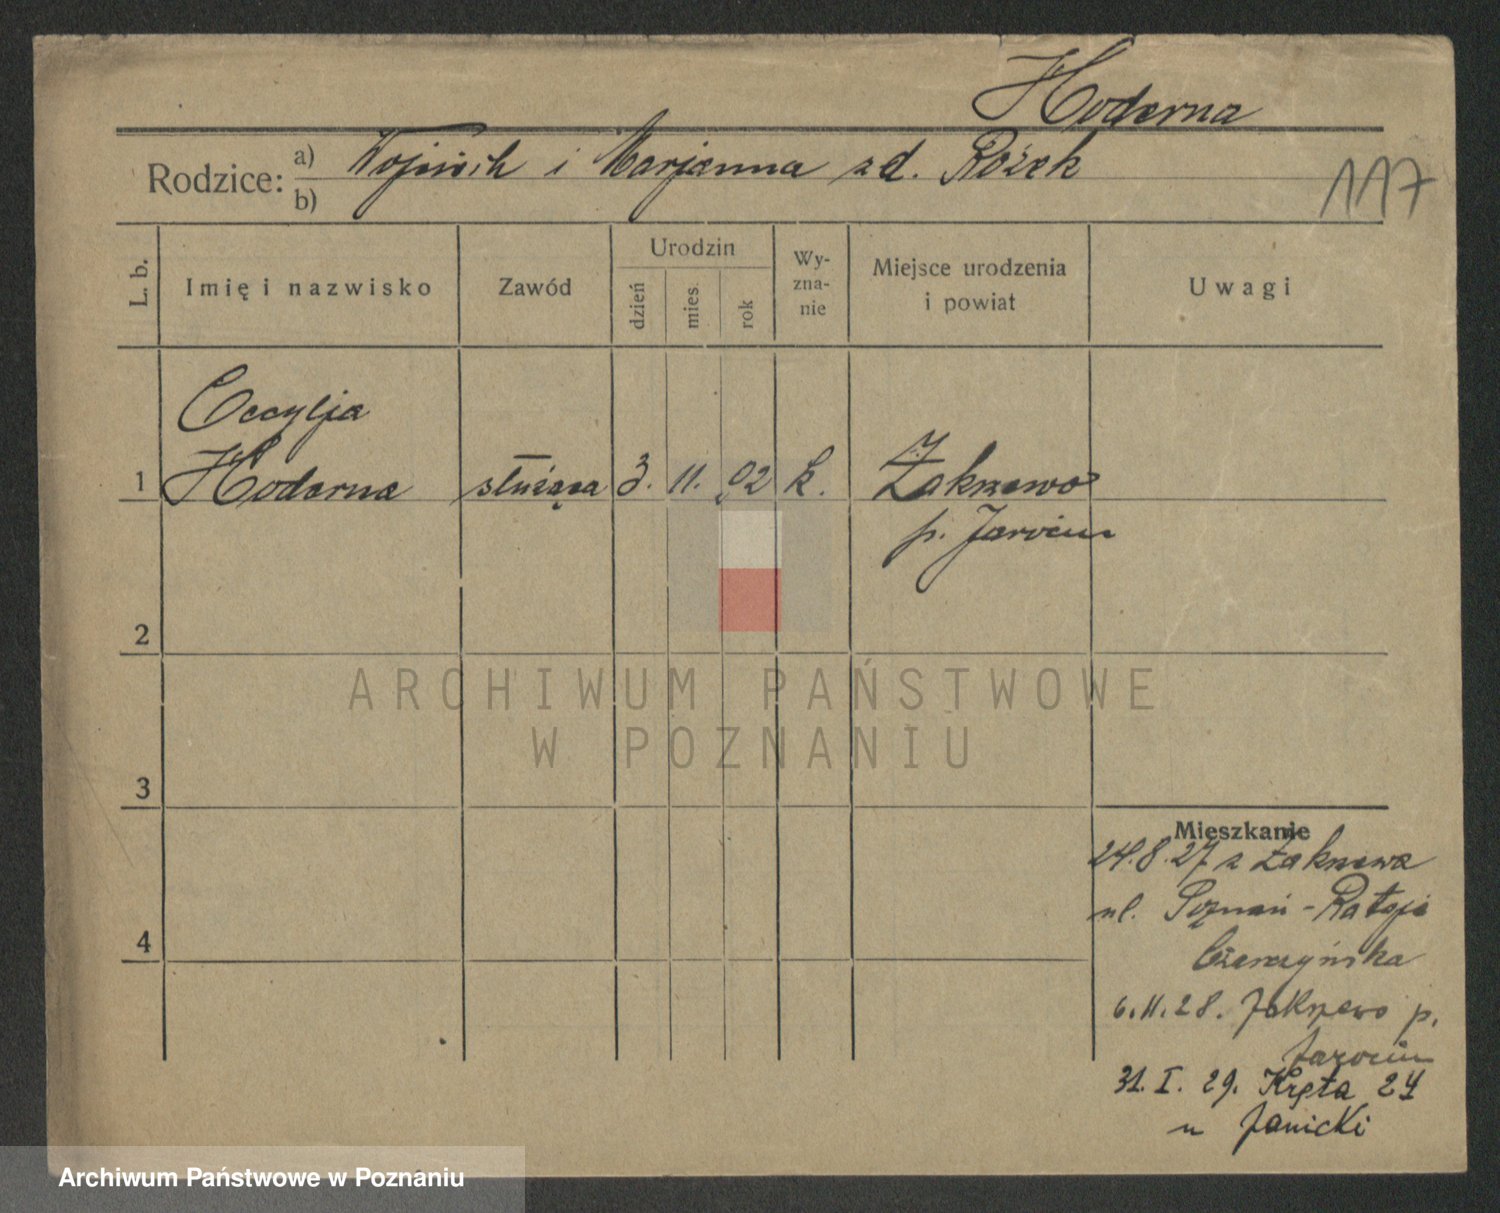 Hoderna
Rodzice: a) Wojciech i Marjanna zd. Różek
b)
117
L. b.
Imię i nazwisko
Zawód
Urodzin
dzień
mies.
rok
Wy-
zna-
nie
Miejsce urodzenia
i powiat
Uwagi
Cecylja
1 Hoderna służąca 3. 11. 02 k. Zakrzewo
p. Jarocin
2
ARCHIWUM PAŃSTWOWE
W POZNANIU
3
Mieszkanie
24.8.27 z Zakrzewa
ul. Poznań - Rataje
6.11.28. Zakrzewo p.
Jarocin
4
31. I. 29. Kręta 24
u Janicki
Archiwum Państwowe w Poznaniu